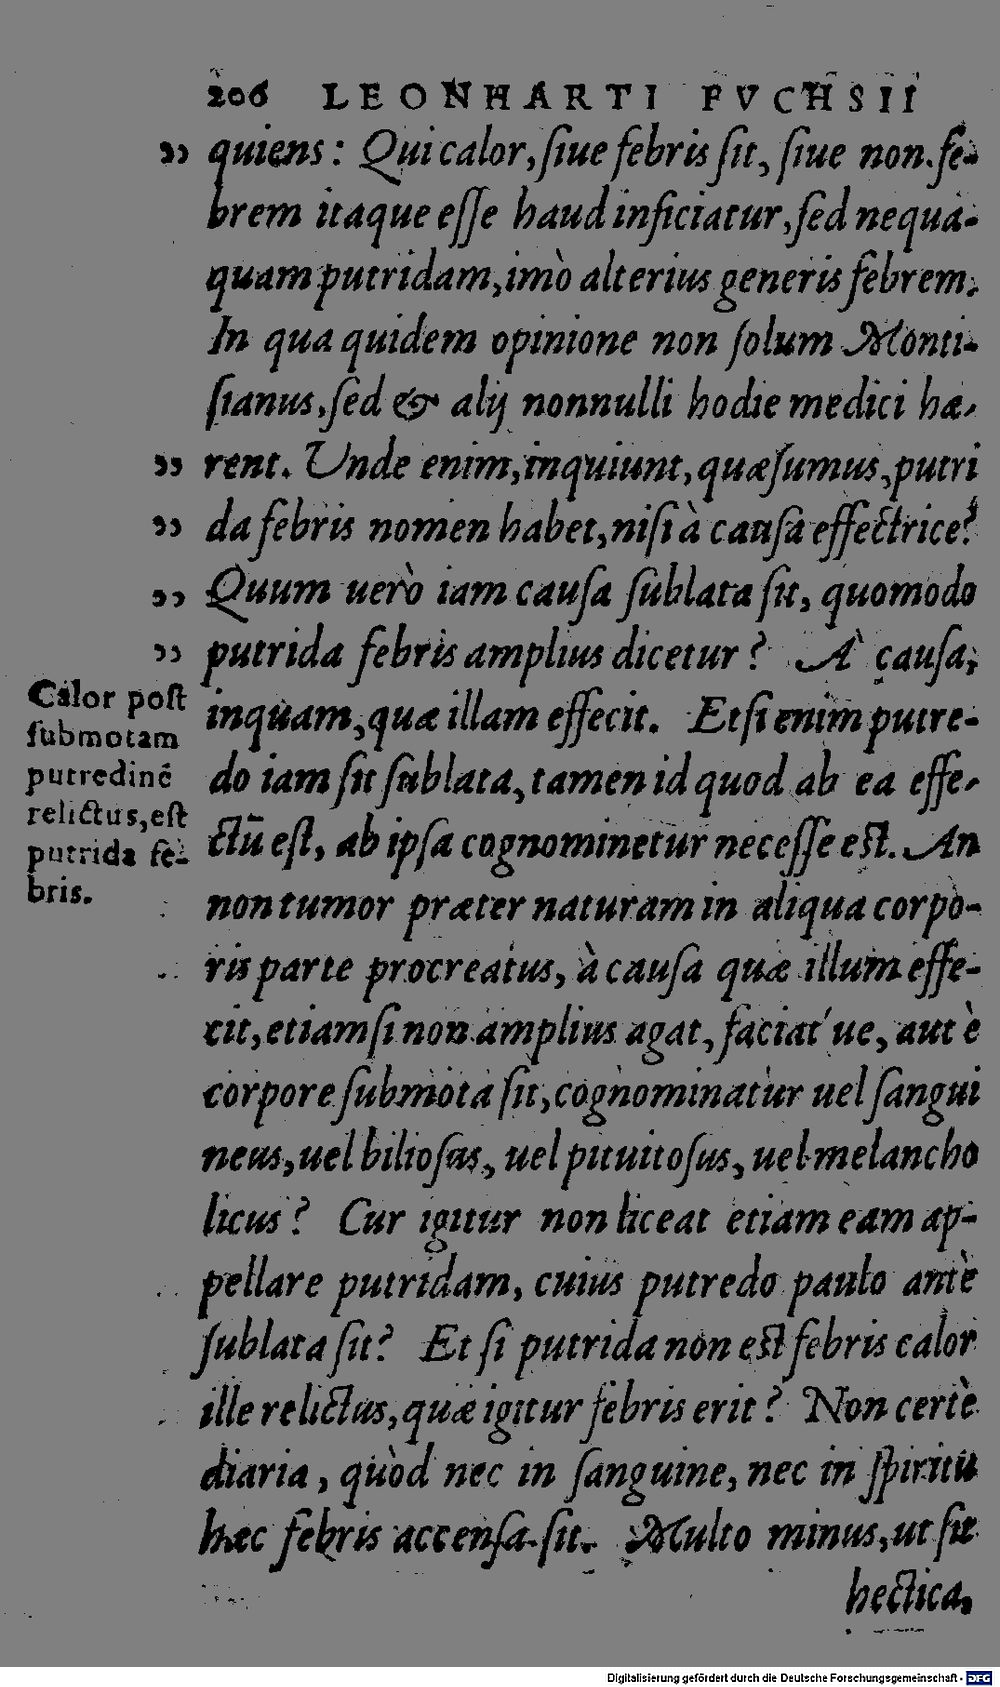 206 LEONHARTI FVCHSII
„ quiens: Qui calor, ſiue febris ſit, ſiue non. fe-
brem itaque eſſe haud inficiatur, ſed nequa-
quam putridam, imò alterius generis febrem.
In qua quidem opinione non ſolum Monti-
ſianus, ſed & alij nonnulli hodie medici hæ-
„ rent. Unde enim, inquiunt, quæſumus, putri
„ da febris nomen habet, niſi à cauſa effectrice?
„ Quum uerò iam cauſa ſublata ſit, quomodo
„ putrida febris amplius dicetur? A' cauſa,
inquam, quæ illam effecit. Etſi enim putre-
do iam ſit ſublata, tamen id quod ab ea effe-
ctū eſt, ab ipſa cognominetur neceſſe eſt. An
non tumor præter naturam in aliqua corpo-
ris parte procreatus, à cauſa quæ illum effe-
cit, etiamſi non amplius agat, faciat'ue, aut è
corpore ſubmota ſit, cognominatur uel ſangui
neus, uel bilioſus, uel pituitoſus, uel melancho
licus? Cur igitur non liceat etiam eam ap-
pellare putridam, cuius putredo paulo antè
ſublata ſit? Et ſi putrida non eſt febris calor
ille relictus, quæ igitur febris erit? Non certè
diaria, quòd nec in ſanguine, nec in ſpiritu
hæc febris accenſa ſit. Multo minus, ut ſit
hectica,
Calor poſt
ſubmotam
putredinē
relictus, eſt
putrida fe-
bris.
Digitalisierung gefördert durch die Deutsche Forschungsgemeinschaft - DFG